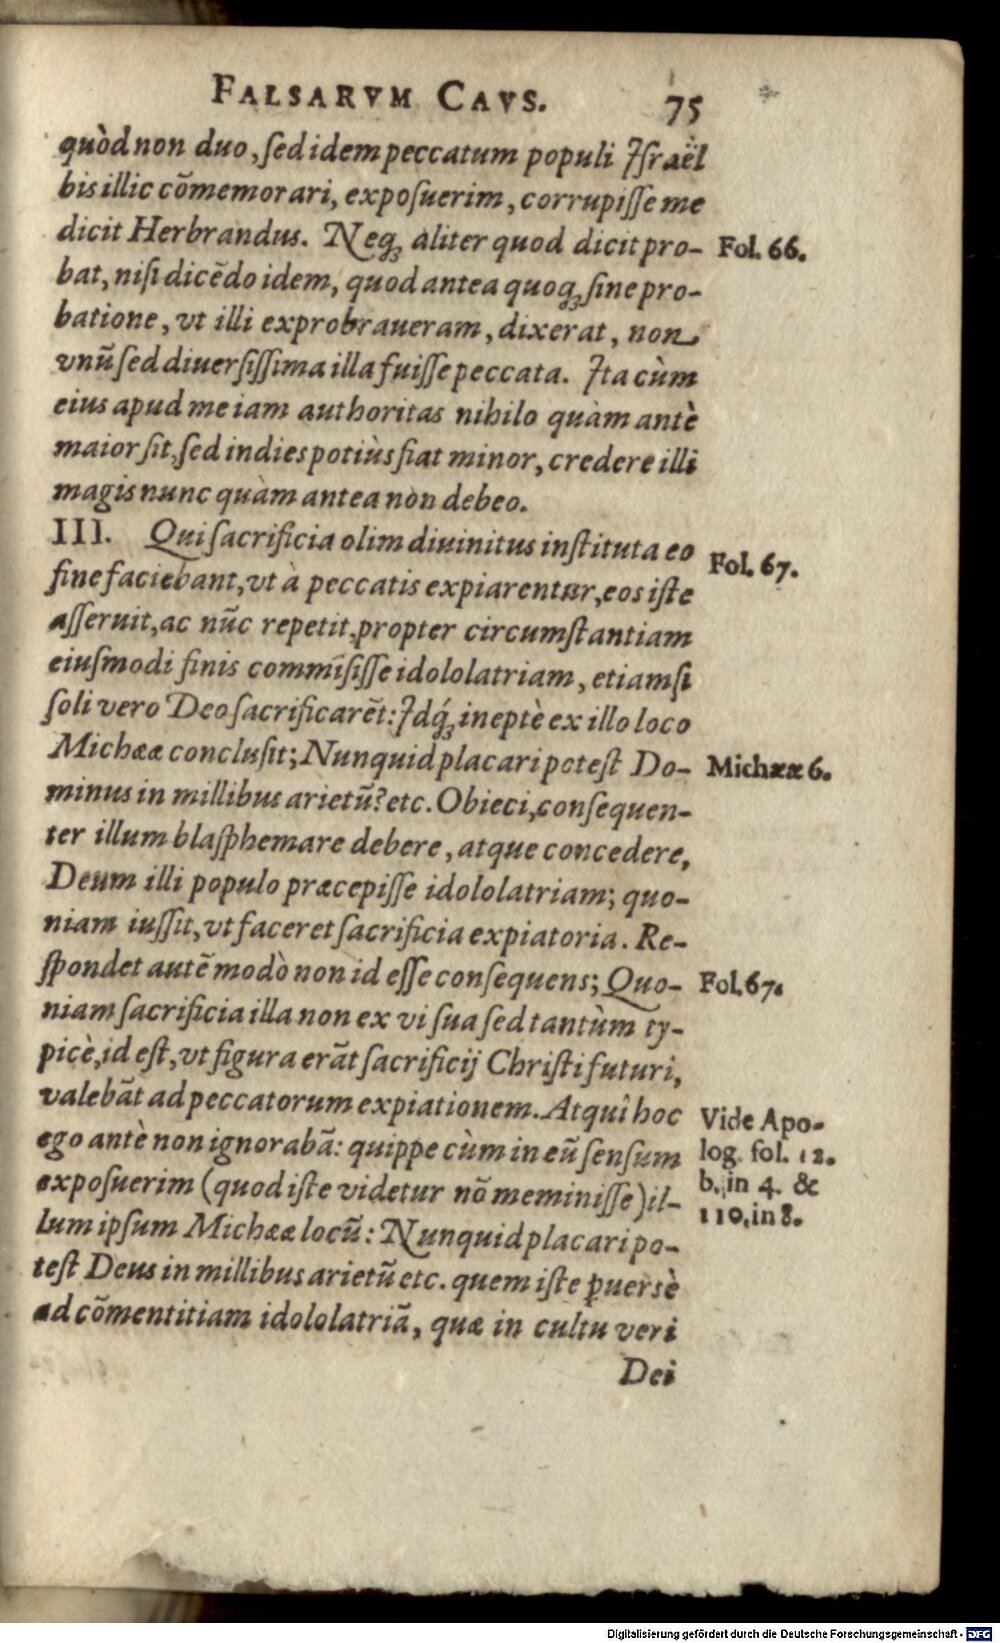 FALSARVM CAVS. 75
quòd non duo, ſed idem peccatum populi Iſraël
bis illic cõmemorari, expoſuerim, corrupiſſe me
dicit Herbrandus. Neqꝫ aliter quod dicit pro-
Fol. 66.
bat, niſi dicẽdo idem, quod antea quoqꝫ ſine pro-
batione, vt illi exprobraueram, dixerat, non
vnũ ſed diuerſiſſima illa fuiſſe peccata. Ita cùm
eius apud me iam authoritas nihilo quàm antè
maior ſit, ſed indies potiùs fiat minor, credere illi
magis nunc quàm antea non debeo.
III. Qui ſacrificia olim diuinitus inſtituta eo
Fol. 67.
fine faciebant, vt à peccatis expiarentur, eos iſte
aſſeruit, ac nũc repetit, propter circumſtantiam
eiuſmodi finis commĩſiſſe idololatriam, etiamſi
ſoli vero Deo ſacrificarẽt: Idq́ꝫ ineptè ex illo loco
Michææ concluſit; Nunquid placari poteſt Do-
Michææ 6.
minus in millibus arietũ? etc. Obieci, conſequen-
ter illum blaſphemare debere, atque concedere,
Deum illi populo præcepiſſe idololatriam; quo-
niam iuſſit, vt faceret ſacrificia expiatoria. Re-
ſpondet autẽ modò non id eſſe conſequens; Quo-
Fol. 67.
niam ſacrificia illa non ex vi ſua ſed tantùm ty-
picè, id eſt, vt figura erãt ſacrificij Chriſti futuri,
valebãt ad peccatorum expiationem. Atqui hoc
Vide Apo-
ego antè non ignorabã: quippe cùm in eũ ſenſum
log. fol. 12.
expoſuerim (quod iſte videtur nõ meminiſſe) il-
b. in 4. &
110. in 8.
lum ipſum Michææ locũ: Nunquid placari po-
teſt Deus in millibus arietũ etc. quem iſte ꝑuersè
ad cõmentitiam idololatriã, quæ in cultu veri
Dei
Digitalisierung gefördert durch die Deutsche Forschungsgemeinschaft - DFG